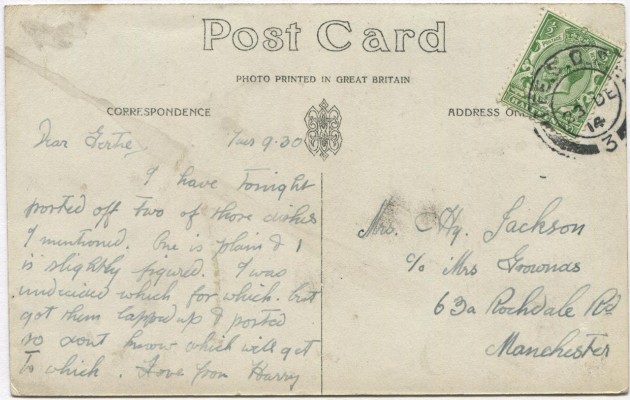 Post Card
PHOTO PRINTED IN GREAT BRITAIN
CORRESPONDENCE
ADDRESS ON
Dear Gertie, Tues 9.30
I have tonight
posted off two of those dishes
I mentioned. One is plain & 1
is slightly figured. I was
undecided which for which. but
got them lapped up & posted
so dont know which will get
to which. Love from Harry
Mrs. Hy. Jackson
c/o Mrs Grownds
63a Rochdale Rd
Manchester
LEEDS.
DE
14
3